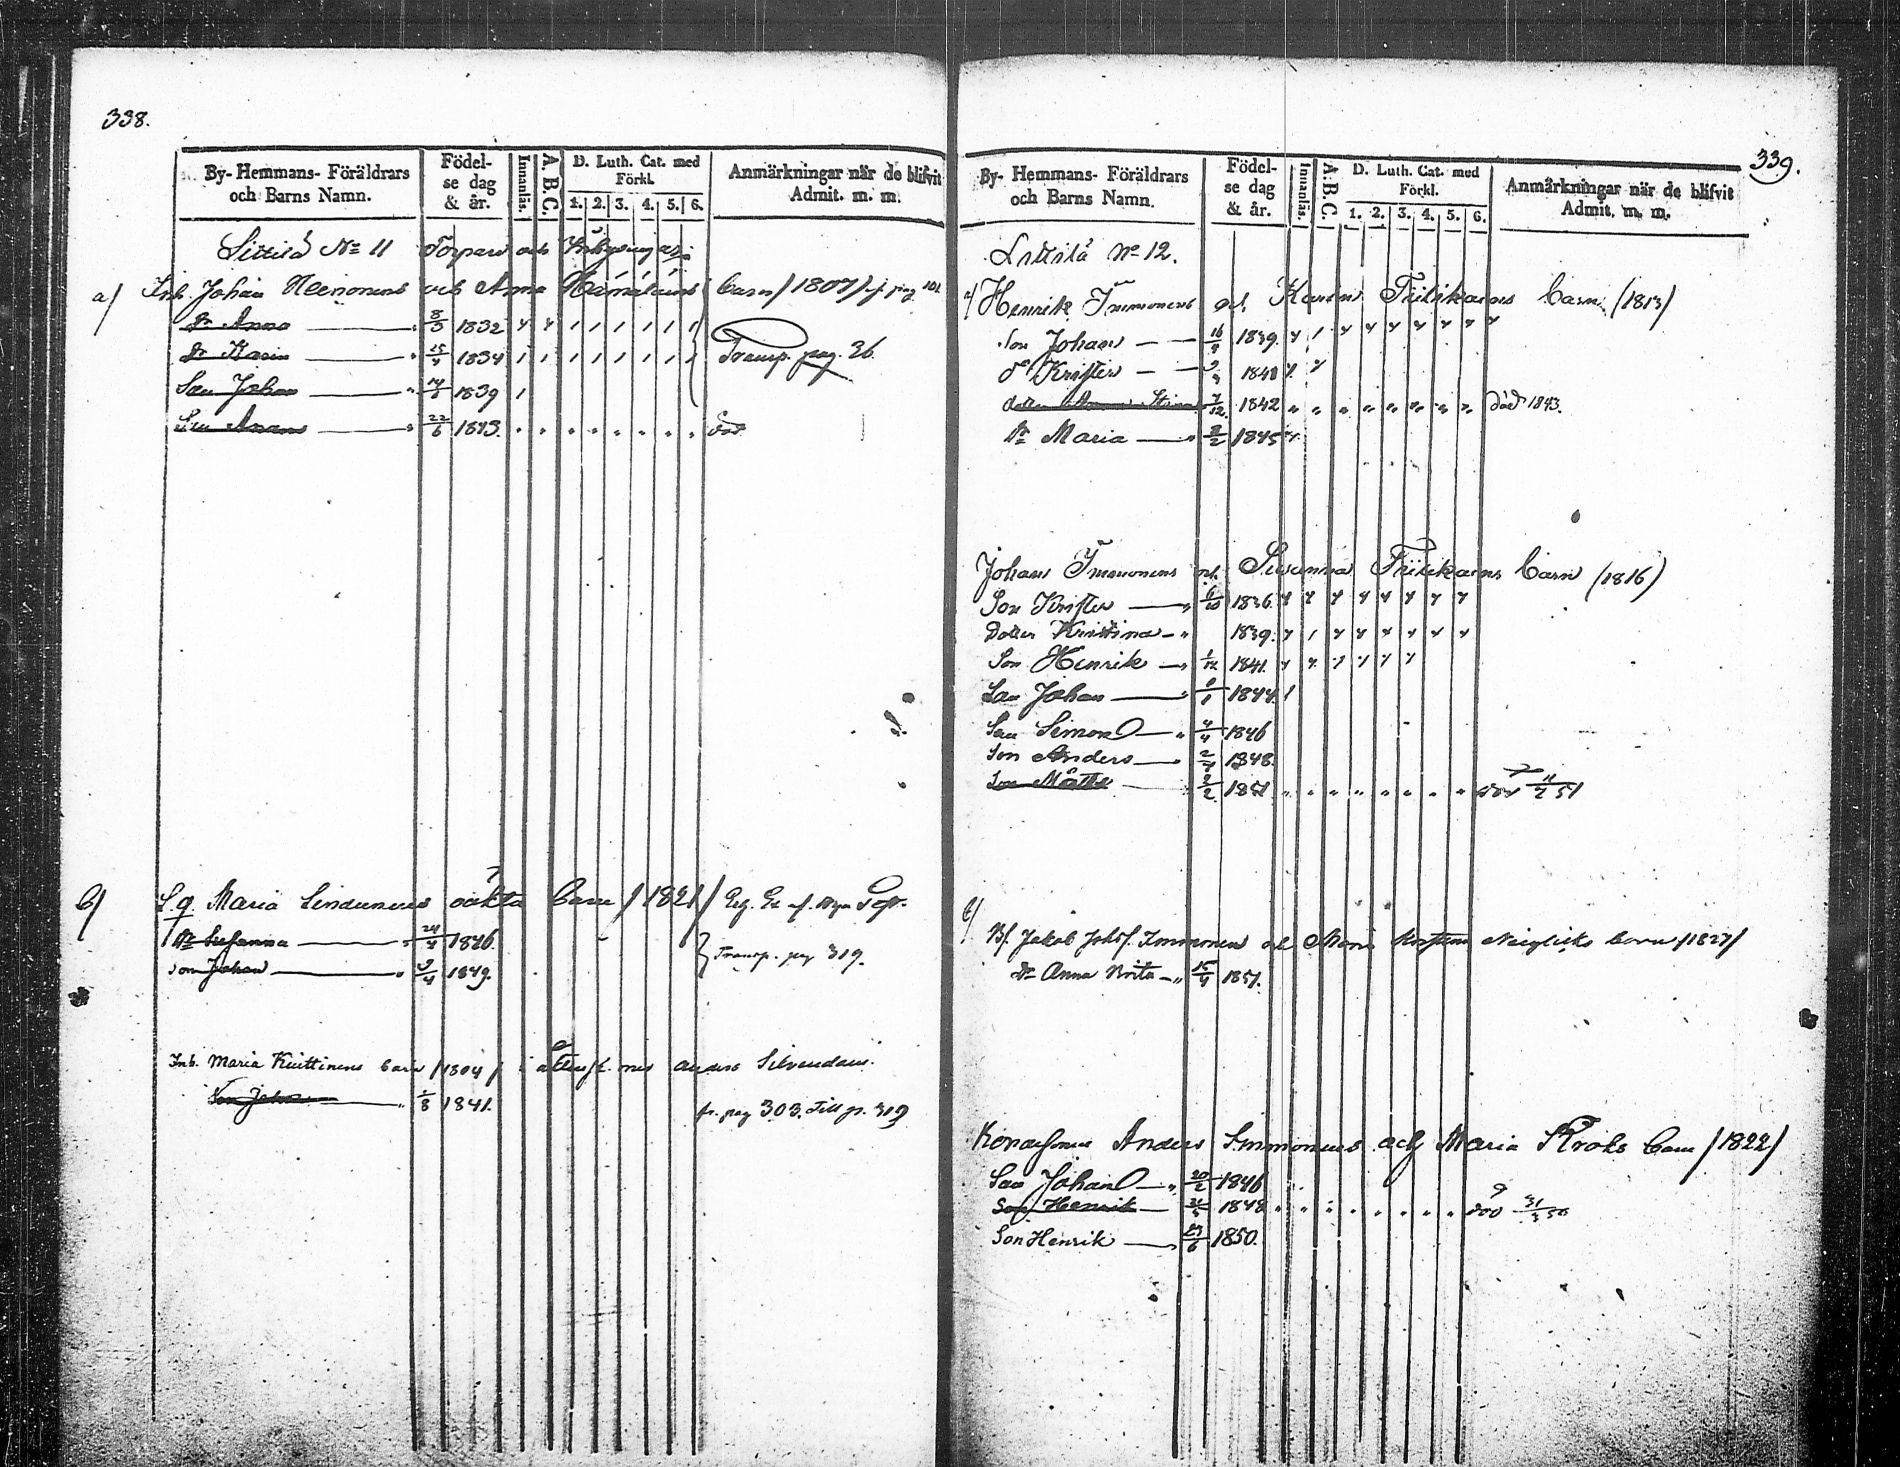 338.
By- Hemmans- Föräldrars och Barns Namn.
Födel-se dag & år.
Innanläs.
A. B. C.
D. Luth. Cat. med Förkl.
1. 2. 3. 4. 5. 6.
Anmärkningar när de blifvit Admit. m. m.
Sittilä No 11 Torpare och Inhysingar.
a/ Inh. Johan Heinonens och Anna barn / 1807 /
Dr Anna 1832
Dr Karin 15/4 1834 Transp. pag. 36.
Son Johan 1839 1
Son Anam 22/6 1843. död
b/ S. q. Maria oäkta barn / 1821 /
Dr Susanna 24/4 1846.
Son Johan 9/4 1849. Transp. pag 319.
Inh. Maria Kuittinens barn / 1804 / med Anders Silvendain.
Son Johan 1/8 1841. fr. pag 303. Till p. 319
339.
By- Hemmans- Föräldrars och Barns Namn.
Födel-se dag & år.
Innanläs.
A. B. C.
D. Luth. Cat. med Förkl.
1. 2. 3. 4. 5. 6.
Anmärkningar när de blifvit Admit. m. m.
Sittilä No 12.
a/ Henrik Immonens och Karin barn (1813)
Son Johan 1839.
do Krister
dotter Anna Stina 7/12 1842 död 1843.
Dr Maria 2/2 1845
Johans Immonens och Susanna barn (1816)
Son Krister 6/10 1836.
Dotter Kristina 1839.
Son Henrik 1/12 1841.
Son Johan 1844.
Son Simon 4/4 1846
Son Anders 2/7 1848.
Son Mathe 2/2 1851 död 11/2 51
b/ Bf. Jakob Johsf. Immonens och Maria barn /1827/
Dr Anna Brita 15/4 1851.
Anders Immonens och Maria Kroks barn / 1822 /
Son Johan 20/2 1846
Son Henrik 1848 död
Son Henrik 1850.